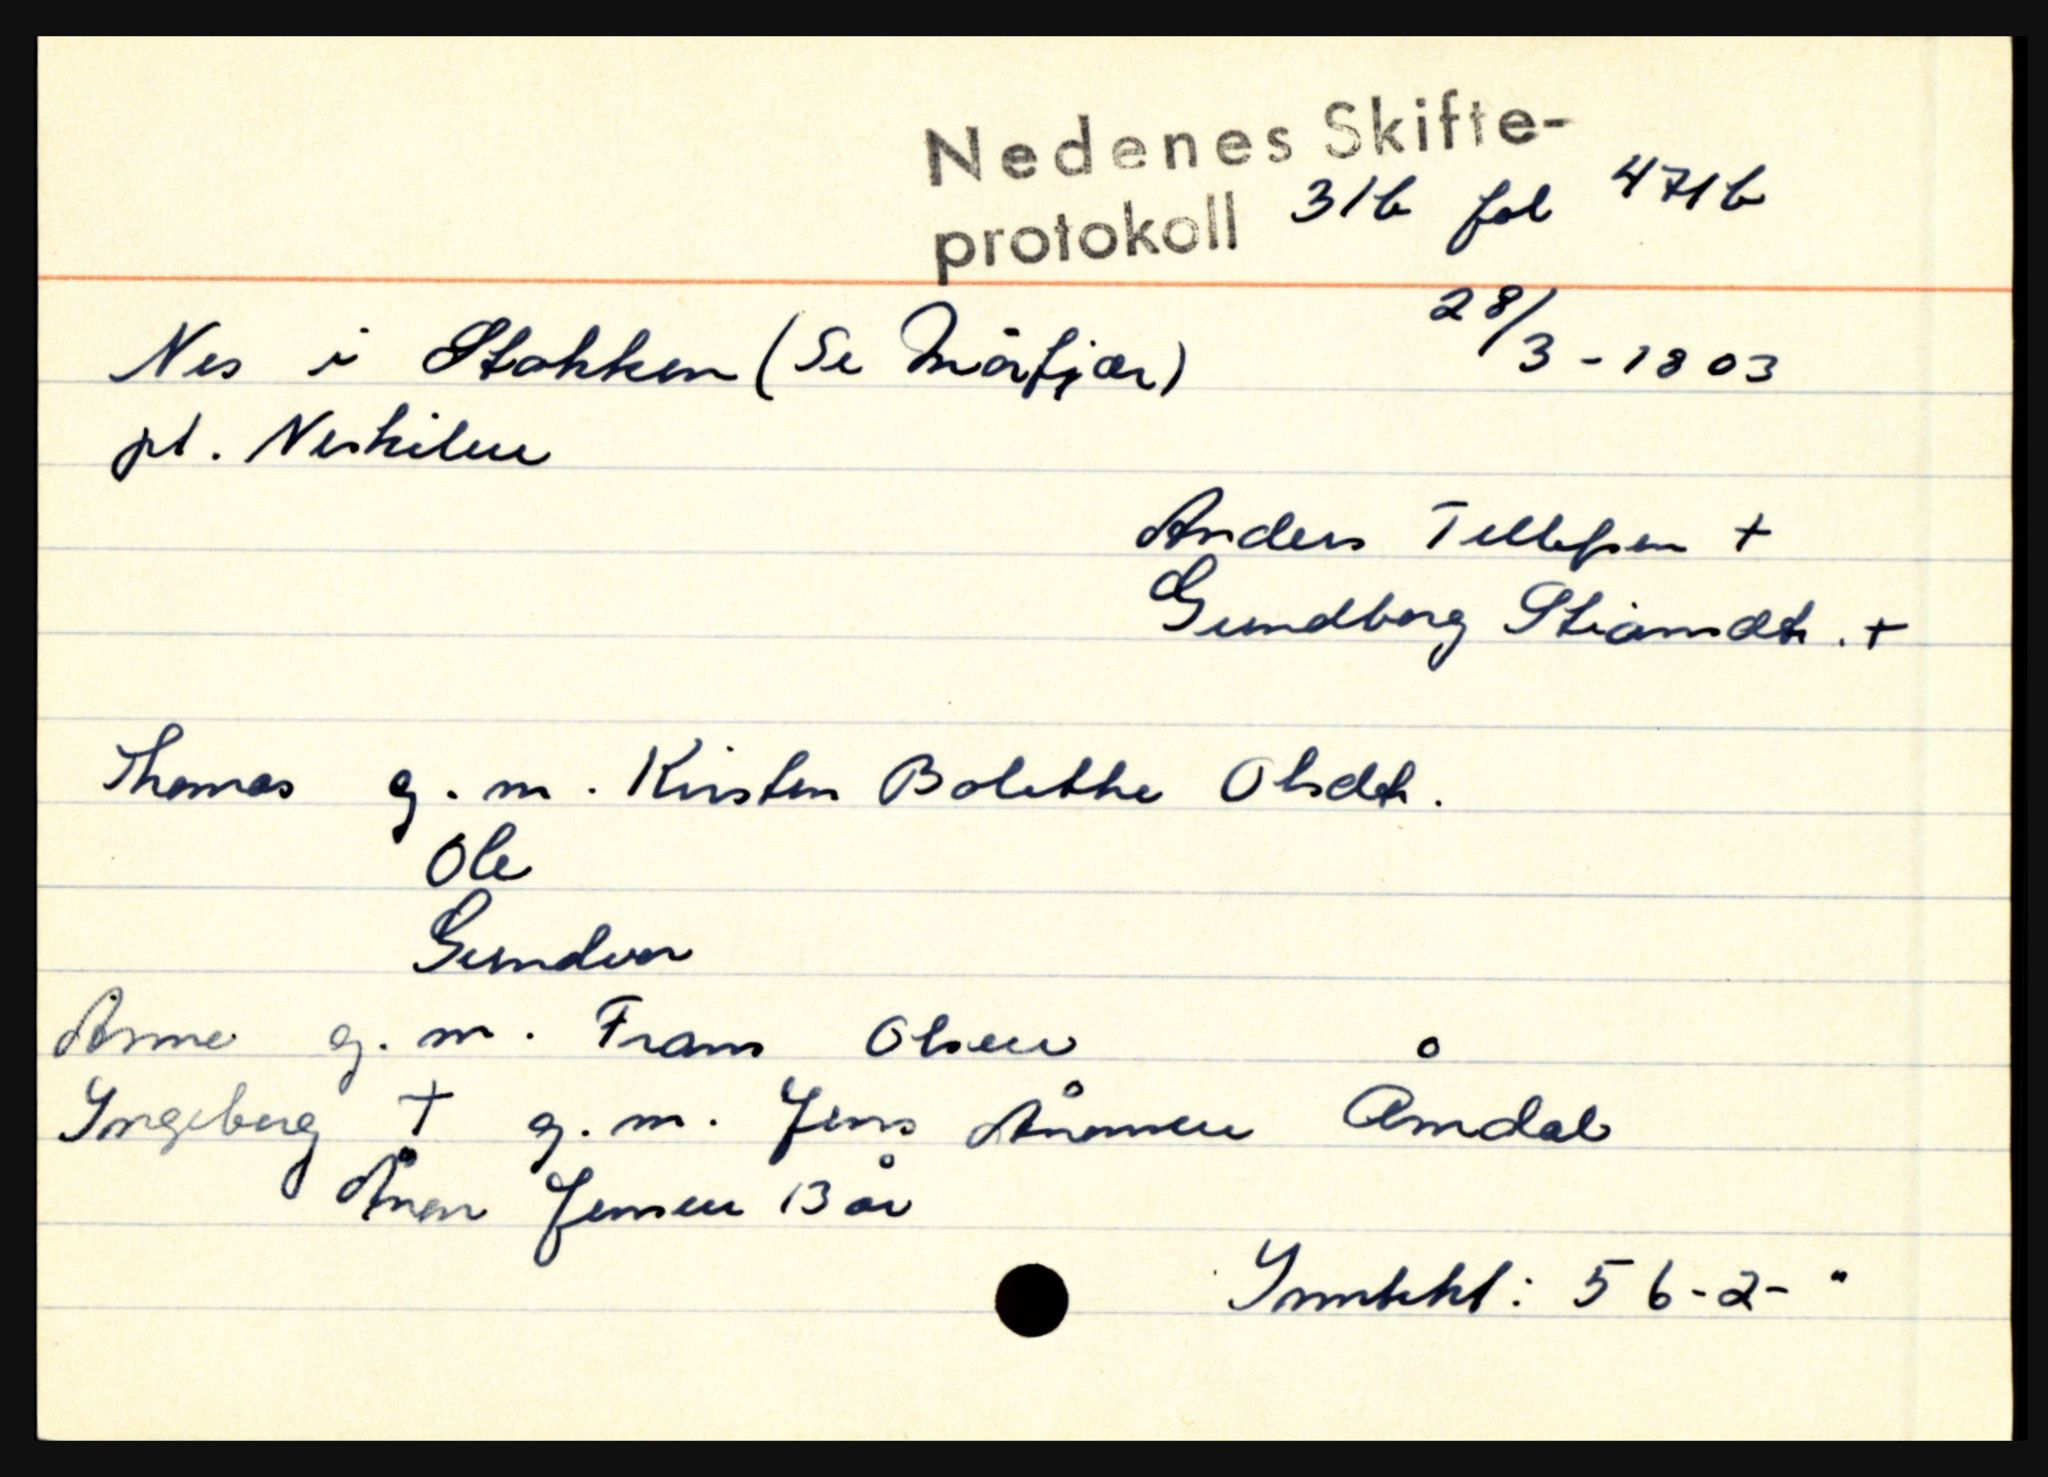 Nedenes Skifte-
protokoll 31b fol 471b
28/3-1803
Nes i Stokken (Se Mörfjær)
pl. Neskilen
Anders Tellefsen +
Gundborg Stiansdtr. +
Thomas g.m. Kirsten Bolethe Olsdtr.
Ole
Gundvor
Anne g.m. Frans Olsen
Yngeborg + g.m. Jens Ånonsen Åmdal
Ånon Jensen 13 år
Ynntekt: 56-2-"